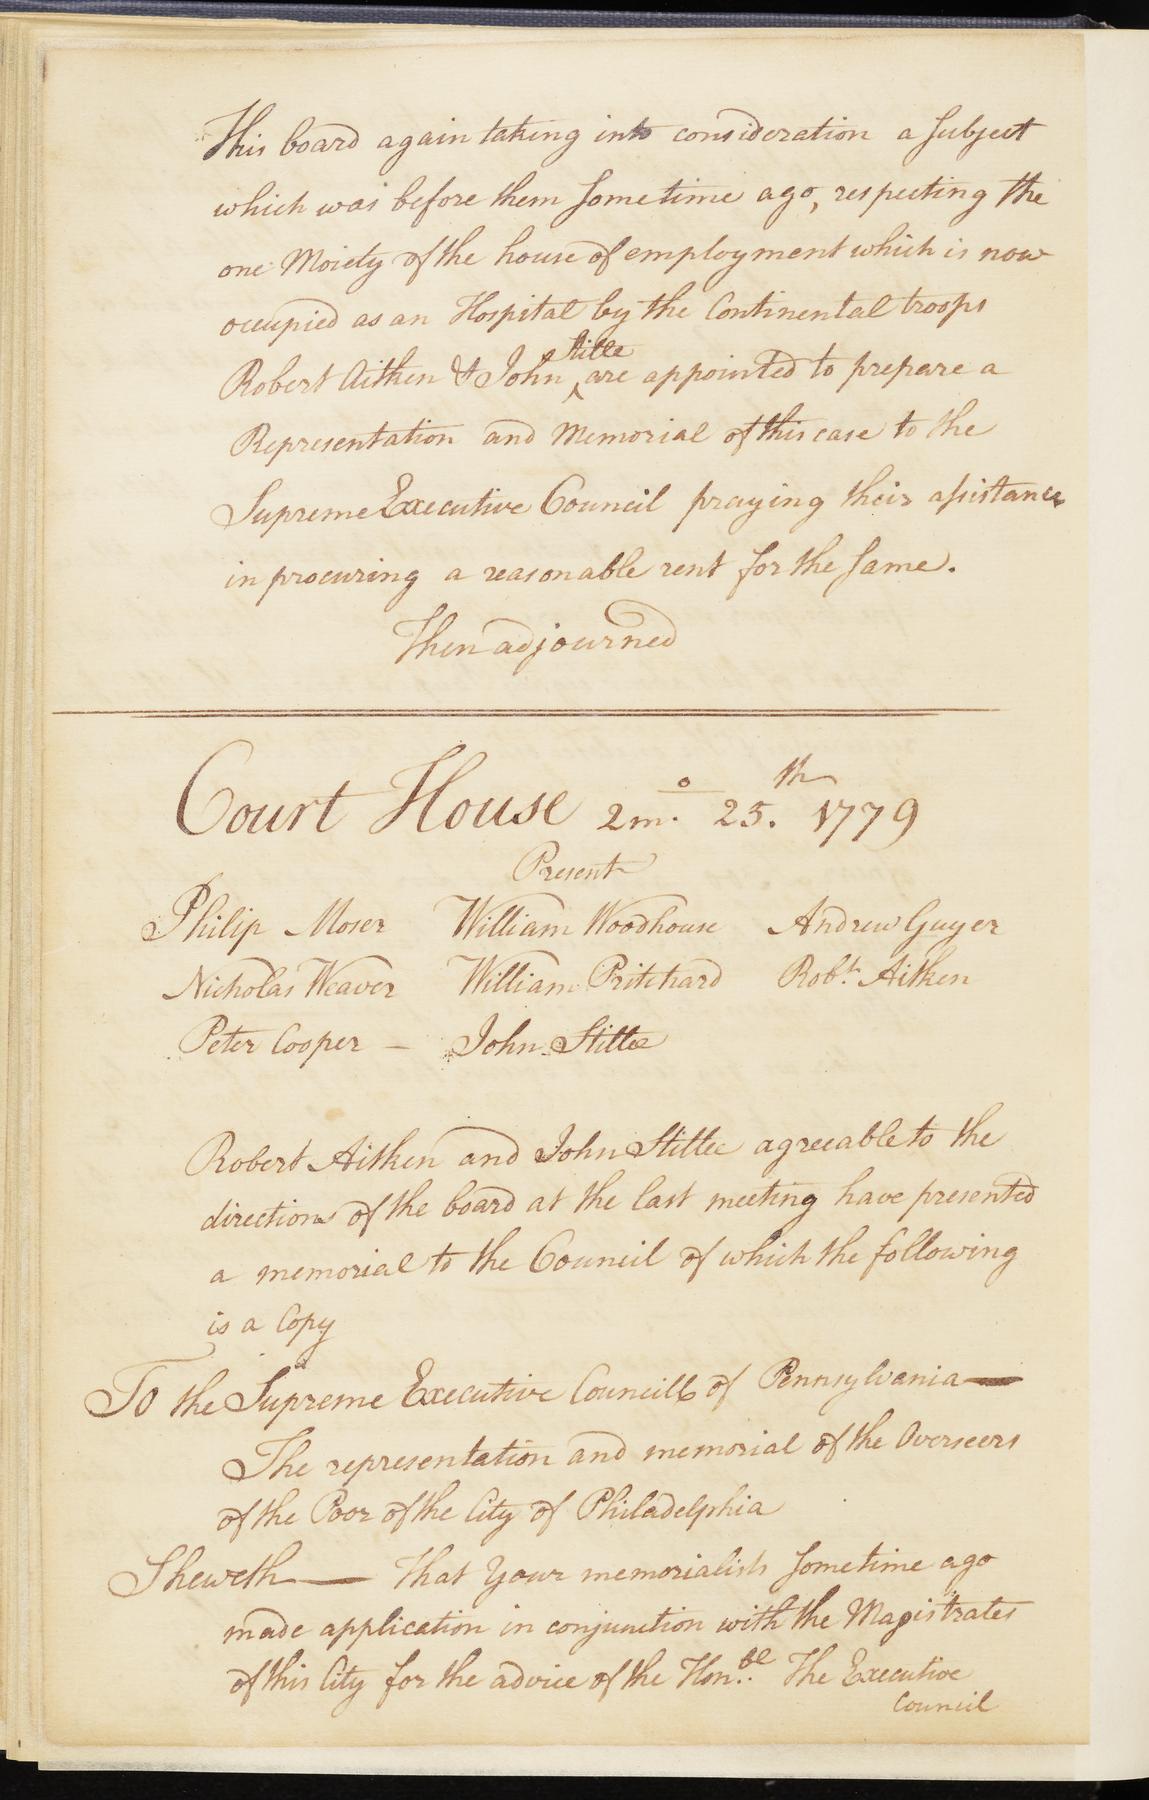 This board again taking into consideration a subject
which was before them sometime ago, respecting the
one Moiety of the house of employment which is now
occupied as an Hospital by the Continental troops
Robert Aitken & John ^Stille are appointed to prepare a
Representation and Memorial of this case to the
Supreme Executive Council praying their assistance
in procuring a reasonable rent for the same.
Then adjourned
Court House 2m.º 25.th 1779
Present
Philip Moser William Woodhouse Andrew Guyer
Nicholas Weaver William Pritchard Robt. Aitken
Peter Cooper — John Stille
Robert Aitken and John Stille agreeable to the
directions of the board at the last meeting have presented
a memorial to the Council of which the following
is a Copy
To the Supreme Executive Council of Pennsylvania —
The representation and memorial of the Overseers
of the Poor of the City of Philadelphia
Sheweth — That Your memorialists sometime ago
made application in conjunction with the Magistrates
of this City for the advice of the Hon.ble The Executive
Council